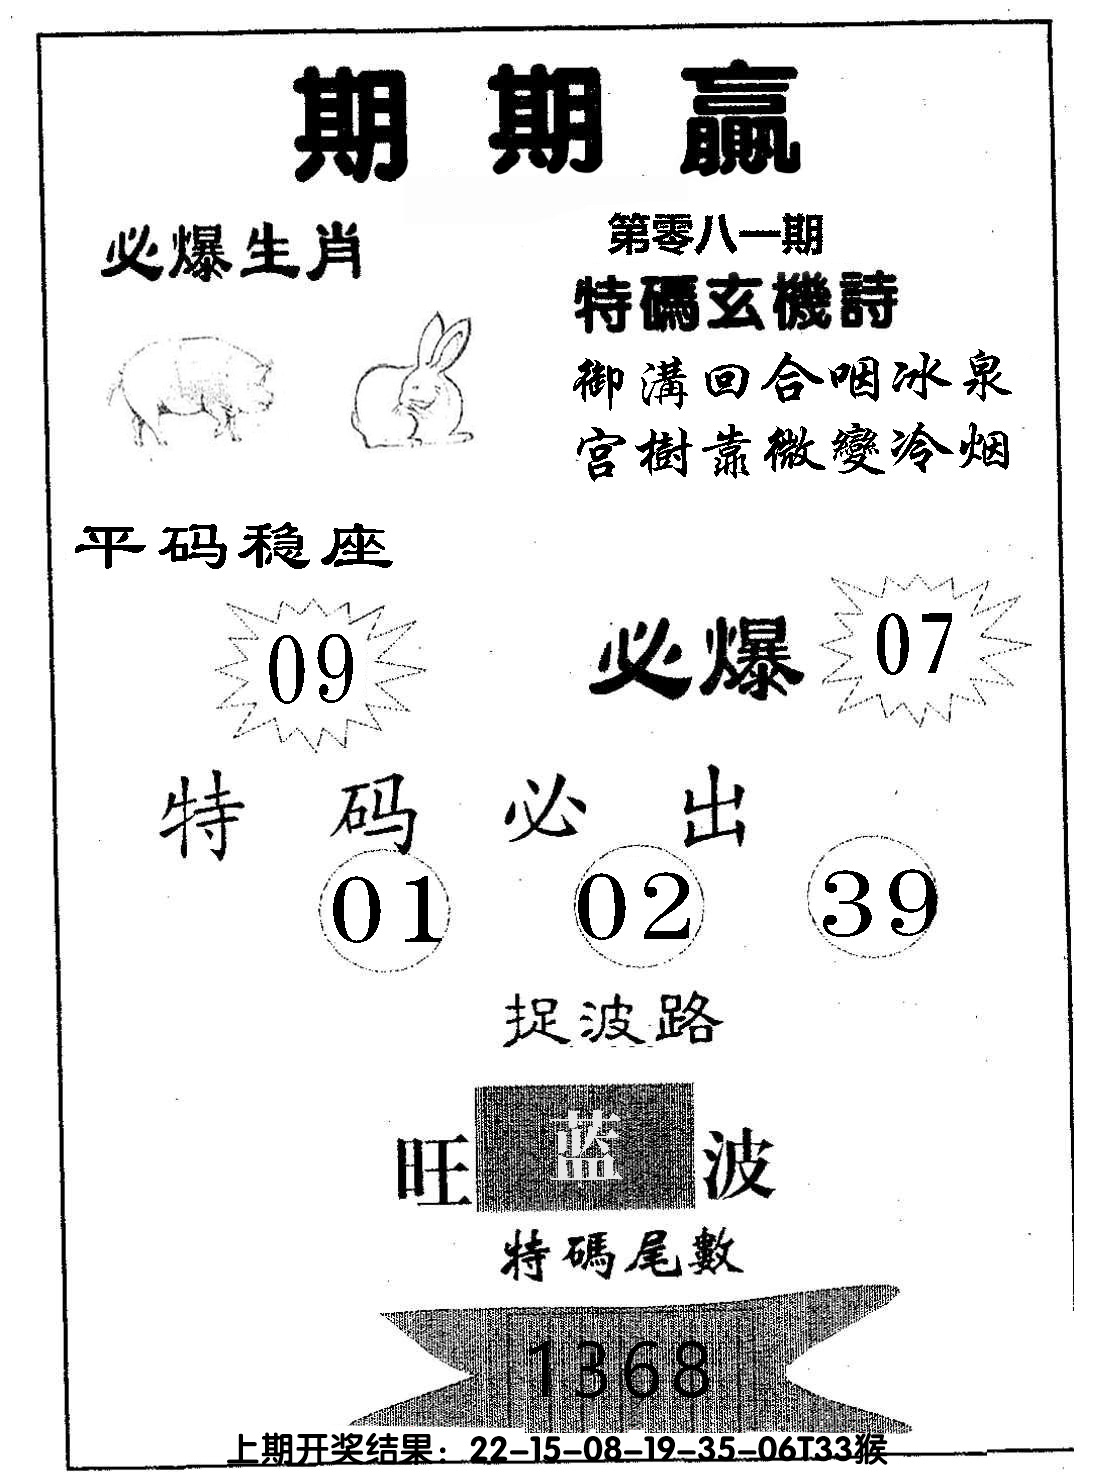 期期贏
必爆生肖
第零八一期
特碼玄機詩
御溝回合咽冰泉
宫樹靠微變冷烟
平码稳座
09
必爆 07
特码必出
01 02 39
捉波路
旺蓝波
特碼尾數
1368
上期开奖结果：22-15-08-19-35-06T33猴